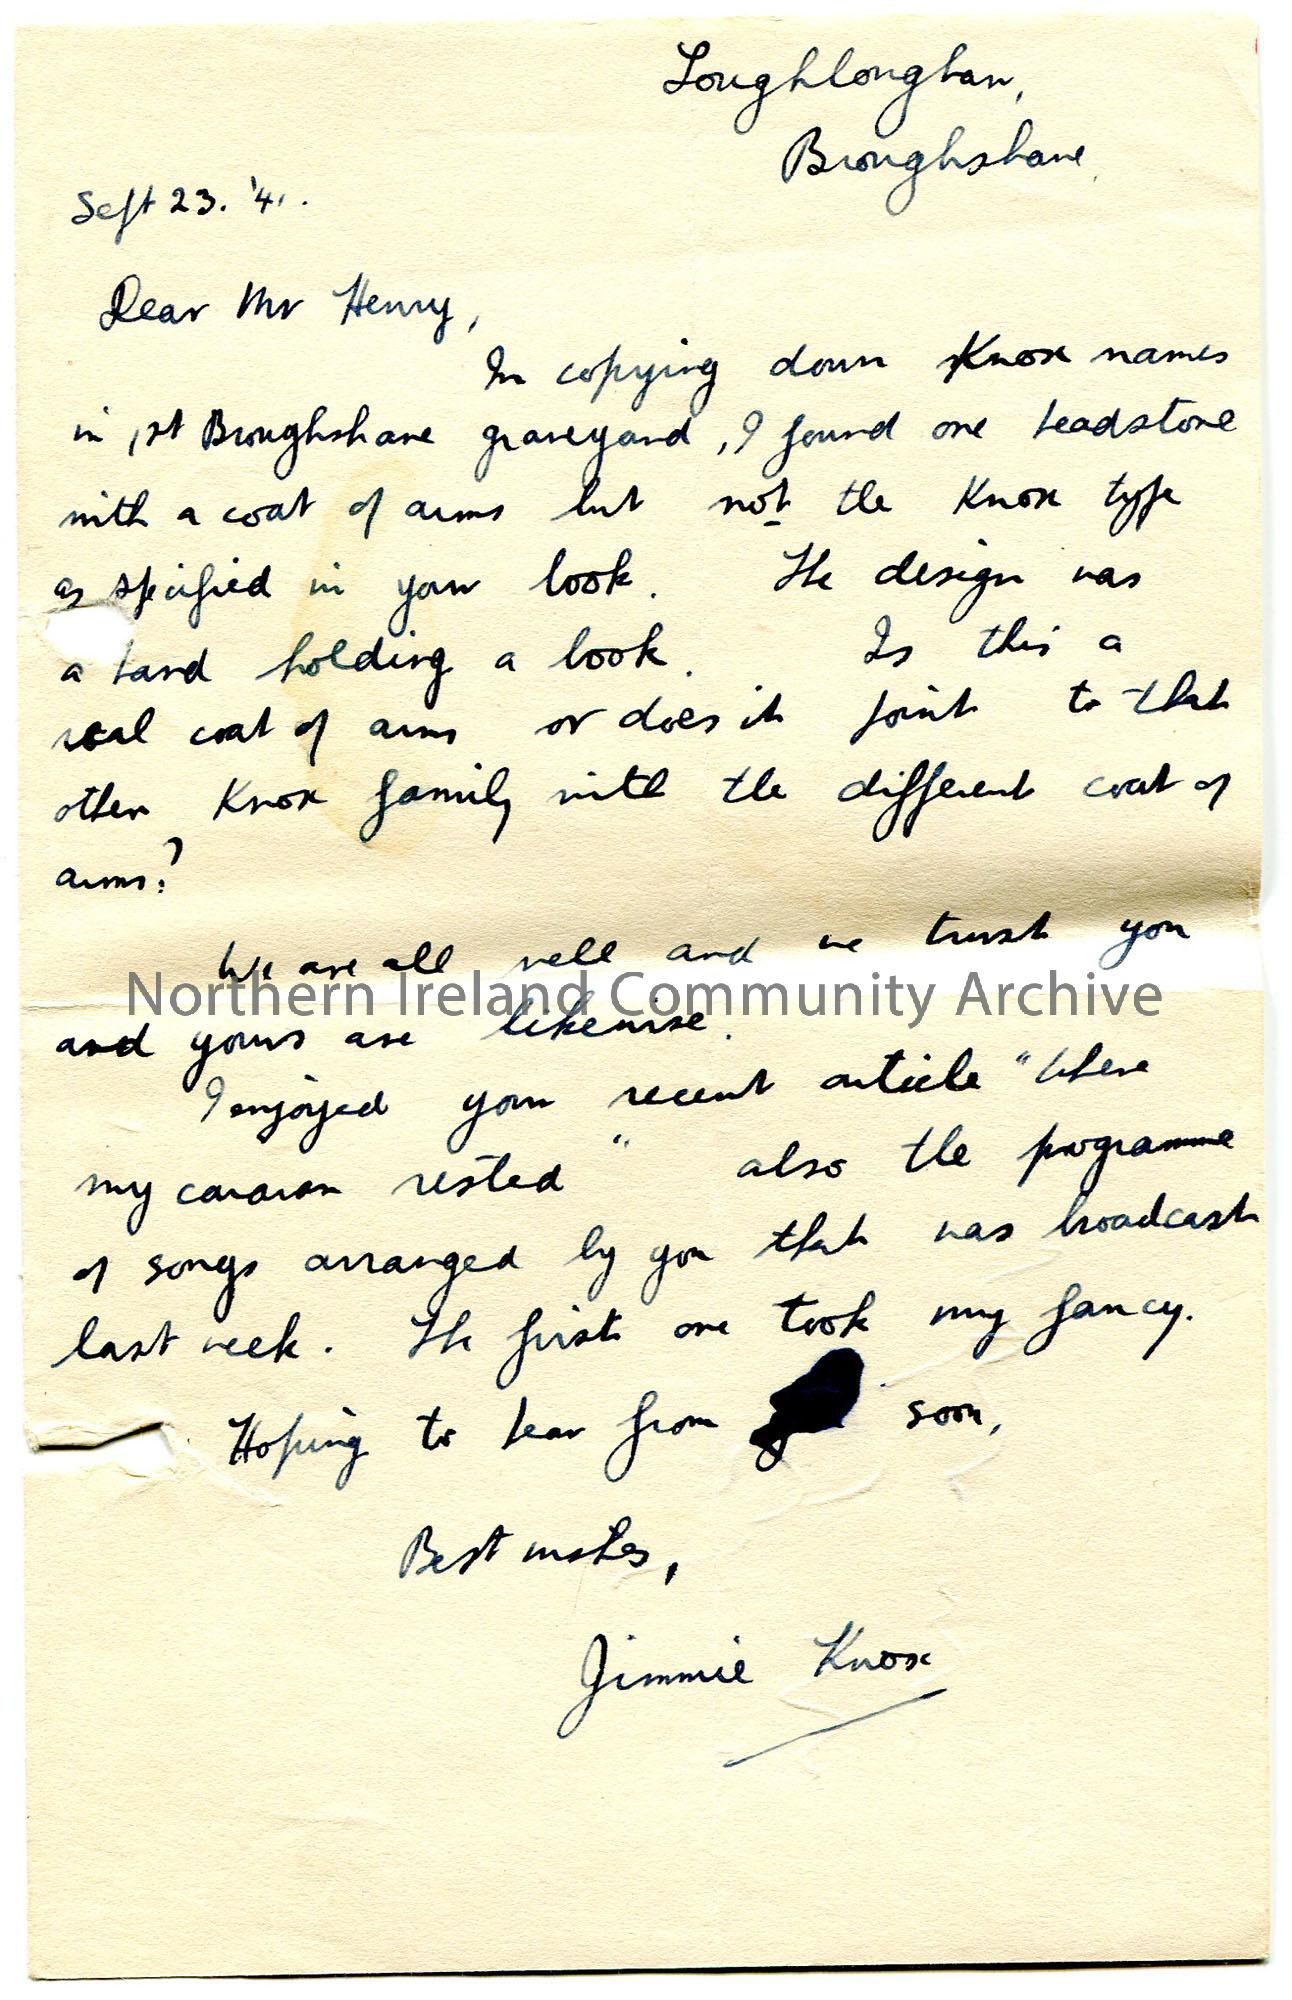 Loughloughan,
Broughshane.
Sept 23. '41.
Dear Mr Henry,
In copying down Knox names
in 1st Broughshane graveyard, I found one headstone
with a coat of arms but not the Knox type
as specified in your book. The design was
a hand holding a book. Is this a
real coat of arms or does it point to that
other Knox family with the different coat of
arms?
We are all well and we trust you
Northern Ireland Community Archive
and yours are likewise.
I enjoyed your recent article "Where
my caravan rested" also the programme
of songs arranged by you that was broadcast
last week. The first one took my fancy.
Hoping to hear from soon,
Best wishes,
Jimmie Knox